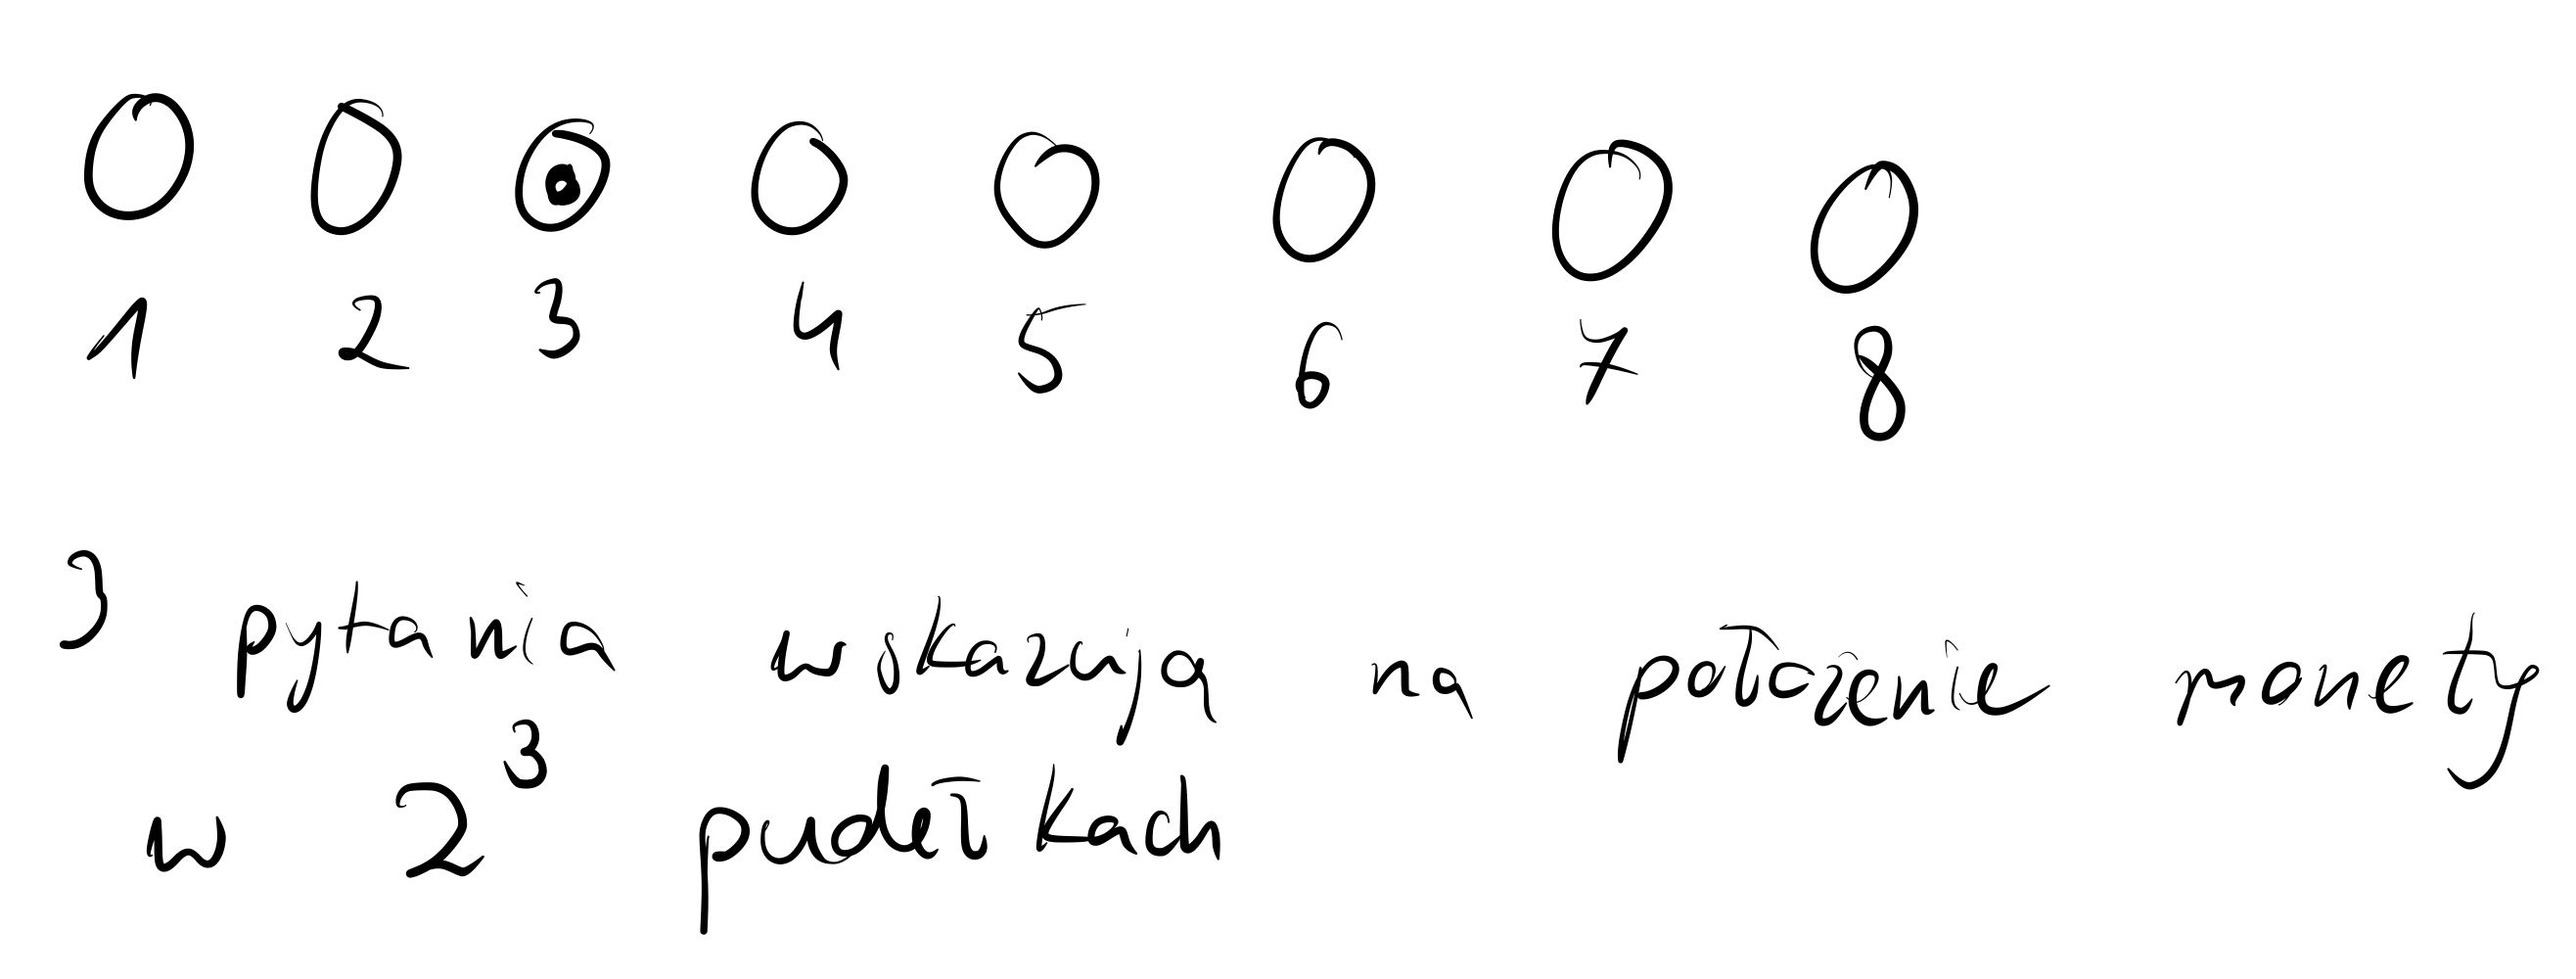 1 2 3 4 5 6 7 8
3 pytania wskazują na położenie monety
w 2³ pudełkach